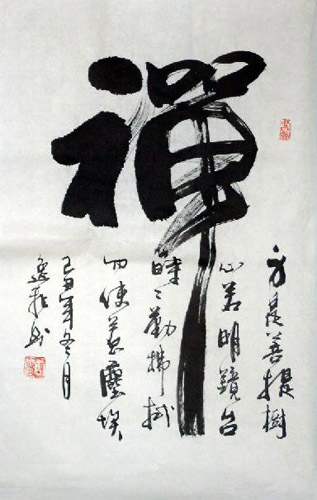 禪
身是菩提樹
心若明鏡台
時々勤拂拭
勿使惹塵埃
己丑年冬月